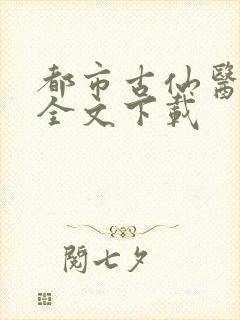 都市古仙醫
全文下載
閱七夕